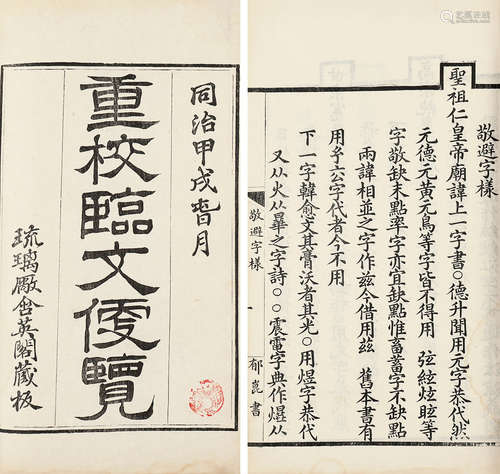 同治甲戌春月
重校臨文便覽
琉璃厰含英閣藏板
敬避字樣
聖祖仁皇帝廟諱上一字書○德升聞用元字恭代然
元德元黃元鳥等字皆不得用 弦絃炫眩等
字敬缺末點率字亦宜缺點惟畜蓄字不缺點
兩諱相並之字作兹今借用茲 舊本書有
用𤣥六公字代者今不用
下一字韓愈文其膏沃者其光○用煜字恭代
又从火从畢之字詩○○震電字典作爗从
敬避字樣
郁崑書